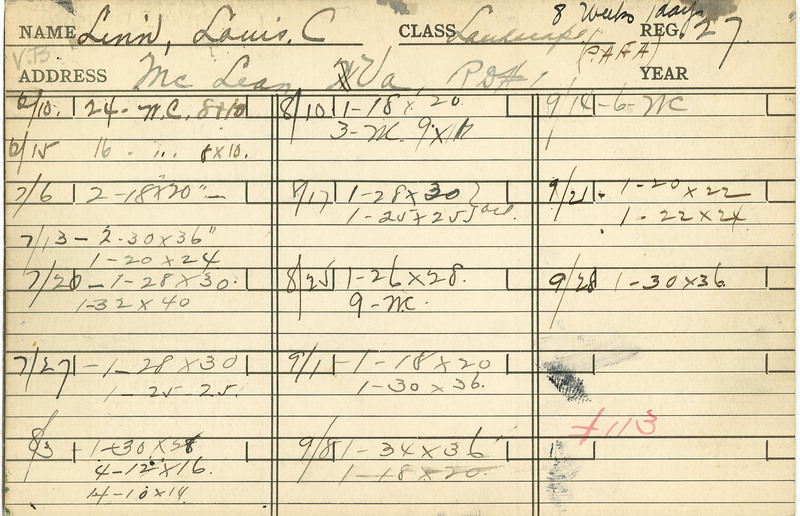 8 Weeks 1 day
NAME Linn, Louis. C CLASS Landscape REG. 27.
(PAFA)
V.B
ADDRESS Mc Lean Va YEAR
6/10. 24 - W.C. 8x10
6/15 16 - ,,, 8x10.
7/6 2-18x20"-
7/13 - 2-30x36"
1-20x24
7/20 - 1-28x30.
1-32x40
7/27 - 1-28x30
1-25-25.
8/3 1-30x28
4-12x16.
4-10x14
8/10 1-18x20.
3-W.
8/17 1-28x30
1-25x25
8/25 1-26x28.
9-W.C.
9/1 - 1-18x20
1-30x36.
9/8 1-34x36
1-18x20.
9/14 - 6-WC
9/21 - 1-20x22
1-22x24
9/28 1-30x36.
+113